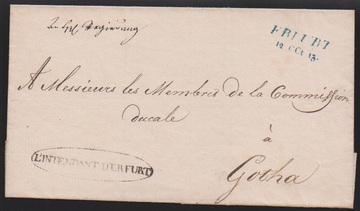 ERFURT
12 OCT 13.
A Messieurs les Membres de la Commission
ducale
à
Gotha
L'INTENDANT D'ERFURT